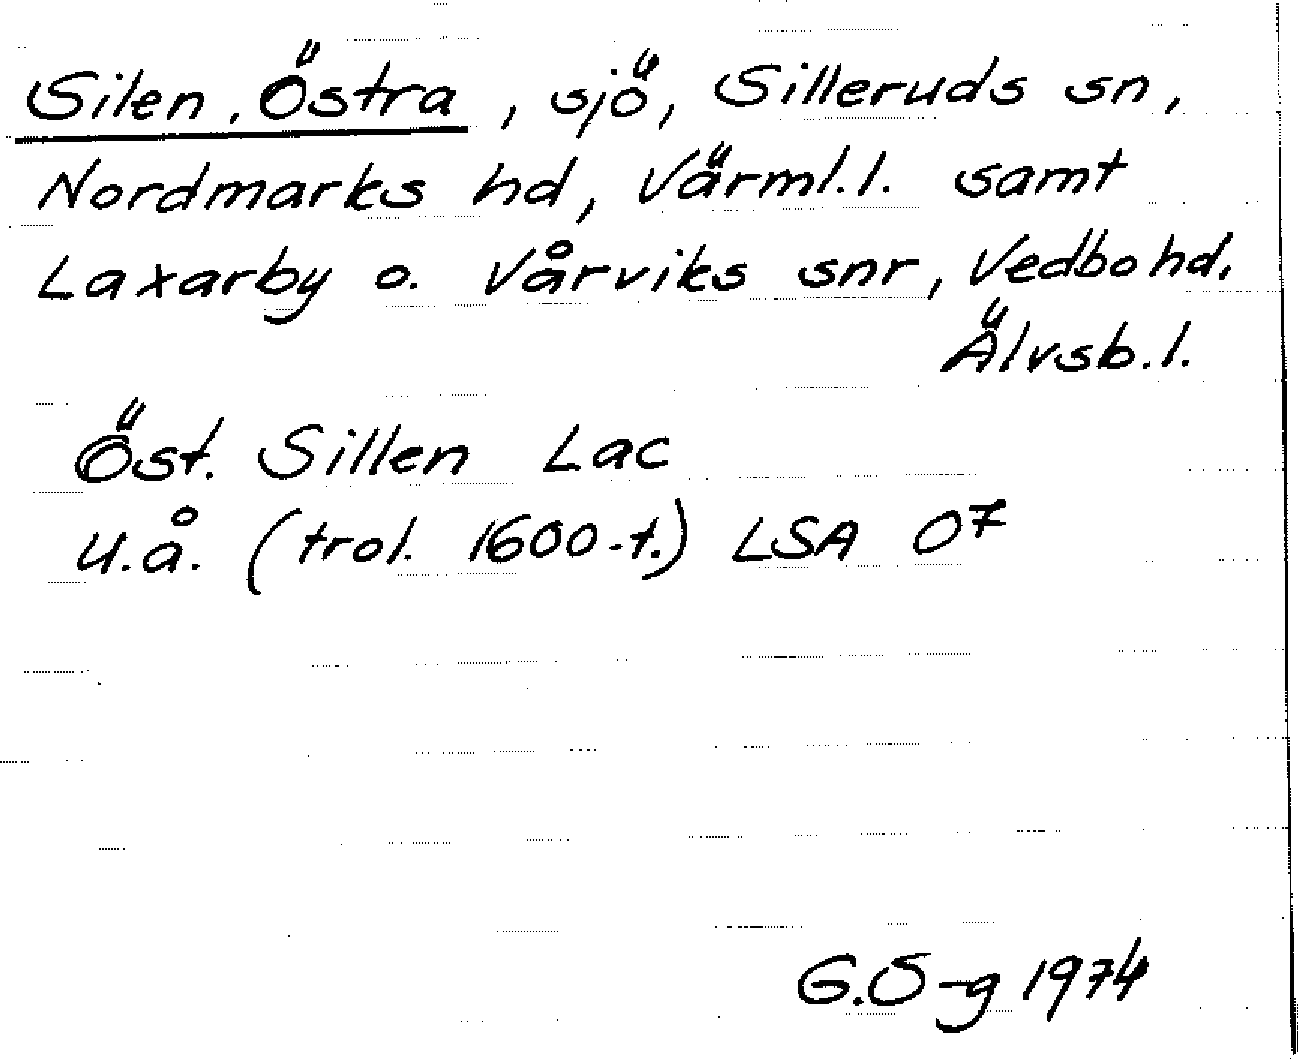 Silen, Östra, sjö, Silleruds sn,
Nordmarks hd, Värml.l. samt
Laxarby o. Vårviks snr, Vedbo hd,
Älvsb.l.
Öst. Sillen Lac
u.å. (trol. 1600-t.) LSA 07
G.Ö-g 1974